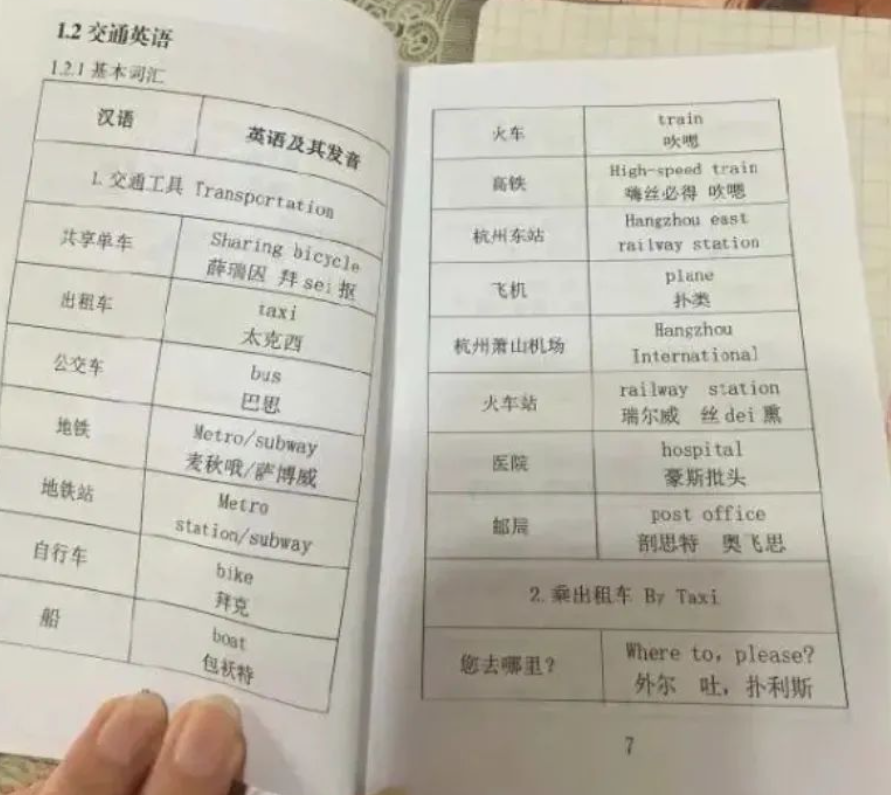 1.2 交通英语
1.2.1 基本词汇
汉语
英语及其发音
1. 交通工具 Transportation
共享单车
Sharing bicycle
薛瑞因 拜 sei 抠
出租车
taxi
太克西
公交车
bus
巴思
地铁
Metro/subway
麦秋哦/萨博威
地铁站
Metro
station/subway
自行车
bike
拜克
船
boat
包袄特
火车
train
吹嗯
高铁
High-speed train
嗨丝必得 吹嗯
杭州东站
Hangzhou east
railway station
飞机
plane
扑类
杭州萧山机场
Hangzhou
International
火车站
railway station
瑞尔威 丝 dei 熏
医院
hospital
豪斯批头
邮局
post office
剖思特 奥飞思
2. 乘出租车 By Taxi
您去哪里?
Where to, please?
外尔 吐, 扑利斯
7